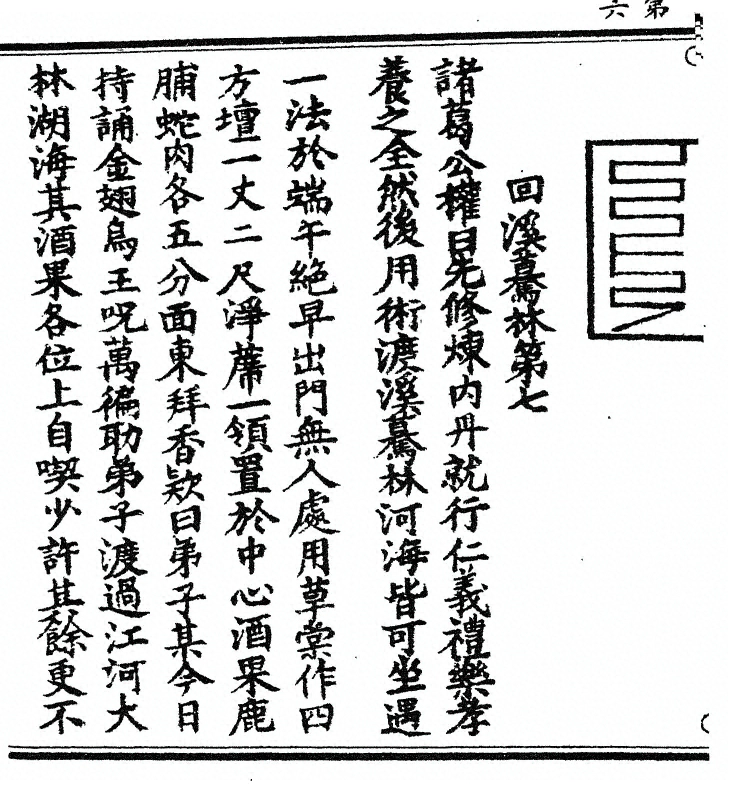 第六
回溪驀林第七
諸葛公權曰先修煉内丹就行仁義禮樂孝
養之全然後用術渡溪驀林河海皆可坐遇
一法於端午絶早出門無人處用草棠作四
方壇一丈二尺淨蓆一領置於中心酒果鹿
脯蛇肉各五分面東拜香欵曰弟子某今日
持誦金翅鳥王呪萬徧助弟子渡過江河大
林湖海其酒果各位上自喫少許其餘更不